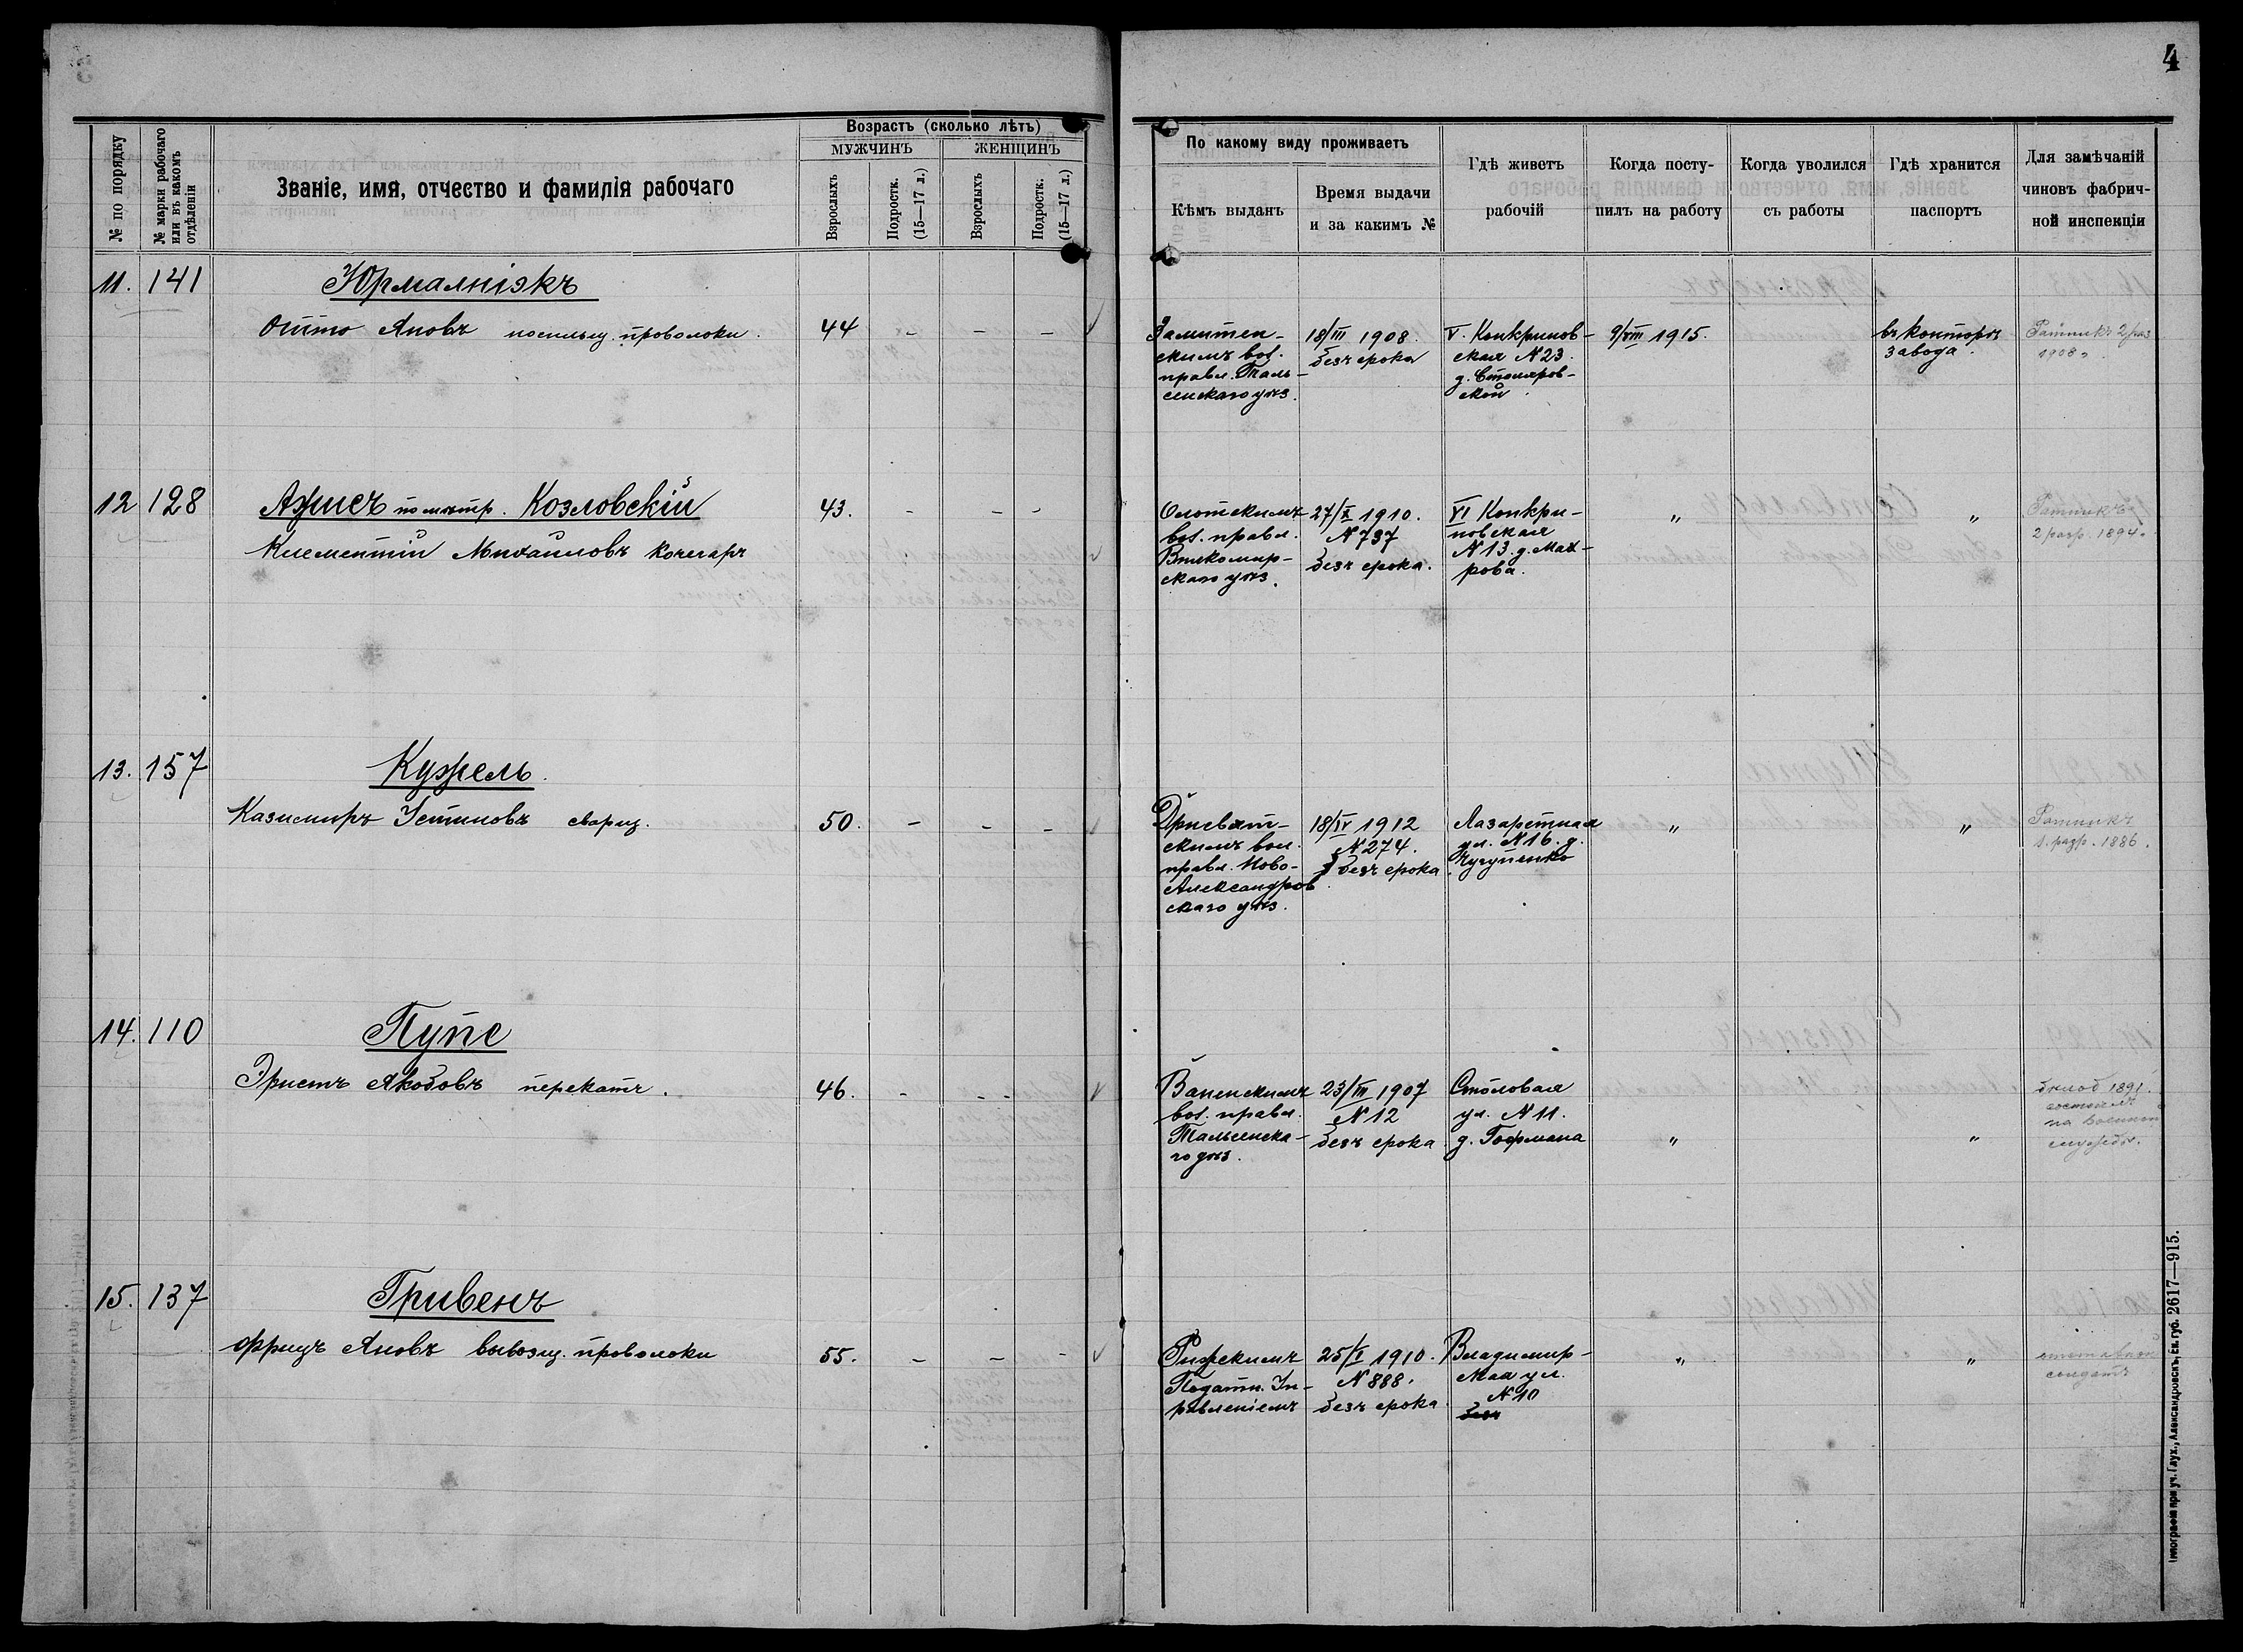 4
№ по порядку
№ марки рабочаго или въ какомъ отдѣленіи
Званіе, имя, отчество и фамилія рабочаго
Возрастъ (сколько лѣтъ)
МУЖЧИНЪ
ЖЕНЩИНЪ
Взрослыхъ
Подростк. (15—17 л.)
Взрослыхъ
Подростк. (15—17 л.)
По какому виду проживаетъ
Кѣмъ выданъ
Время выдачи
и за какимъ №
Гдѣ живетъ
рабочій
Когда посту-
пилъ на работу
Когда уволился
съ работы
Гдѣ хранится
паспортъ
Для замѣчаній
чиновъ фабрич-
ной инспекціи
11. 141
Юрмалніэкъ
Отто Яновъ носильщ. проволоки. 44 - - -
скимъ вол.
правл. Таль-
сенскаго уѣз.
18/III 1908.
безъ срока
V. Канкринов-
ская N 23.
д. Столяров-
ской.
9/VIII 1915.
въ конторѣ
завода.
Ратникъ 2 раз
1908 г.
12 128
Ажисъ по метр. Козловскій
Клементій Михайловъ кочегаръ 43. - - -
вол. правл.
Вилкомир-
скаго уѣз.
27/X 1910.
N 737
безъ срока.
VI Канкри-
новская
N 13. д. Мах-
рова.
" "
Ратникъ
2 разр. 1894 г.
13. 157
Кужель.
Казимиръ Устиновъ сварщ. 50. - - -
Дрисвят-
скимъ вол.
правл. Ново-
Александров
скаго уѣз.
18/IV 1912
N 274.
безъ срока
Лазаретная
ул. N 16. д.
" "
Ратникъ
1. разр. 1886.
14. 110
Пупе
Эрнстъ Якобовъ перекатч. 46. - - -
вол. правл.
Тальсенска-
го уѣз.
23/III 1907
N 12
безъ срока
Столовая
ул. N 11.
д. Гофмана
" "
1891.
на военной
службѣ.
15. 137
Гривенъ
Фрицъ Яновъ вывозщ. проволоки 55. - - -
Рижскимъ
Податн. Уп-
равленіемъ
25/X 1910.
N 888.
безъ срока
Владимир-
ская ул.
N 10
" "
солдатъ
Типограф. при уч. Глух., Александровскъ, Ек. губ. 2617—915.